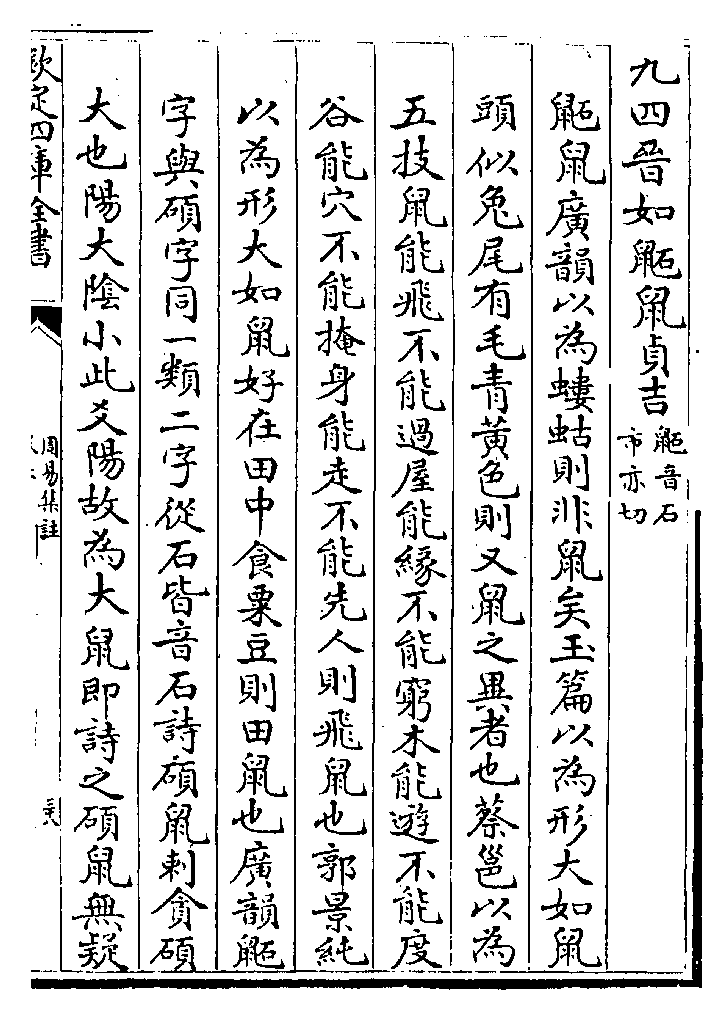 九四晉如鼫鼠貞吉鼫音石市亦切
鼫鼠廣韻以為螻蛄則非鼠矣玉篇以為形大如鼠
頭似兔尾有毛青黃色則又鼠之異者也蔡邕以為
五技鼠能飛不能過屋能緣不能窮木能遊不能度
谷能穴不能掩身能走不能先人則飛鼠也郭景純
以為形大如鼠好在田中食粟豆則田鼠也廣韻鼫
字與碩字同一類二字從石皆音石詩碩鼠刺貪碩
大也陽大陰小此爻陽故為大鼠即詩之碩鼠無疑
欽定四庫全書
周易集註